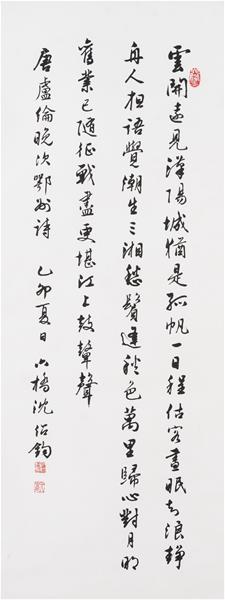 雲開遠見漢陽城猶是孤帆一日程估客晝眠知浪靜
舟人相語覺潮生三湘愁鬢逢秋色萬里歸心對月明
舊業已隨征戰盡更堪江上鼓鼙聲
唐盧倫晚次鄂州詩 乙卯夏日 六橋沈紹鈞